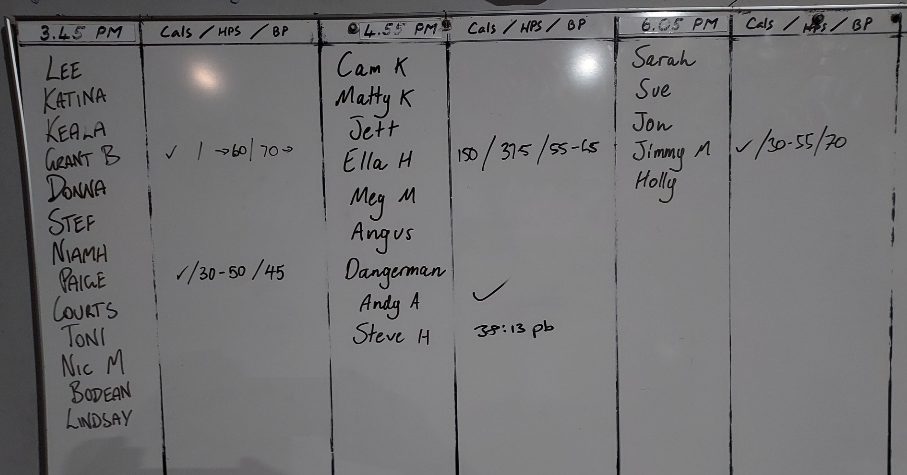 3.45 PM Cals / HPS / BP
LEE
KATINA
KEALA
GRANT B ✓ / →60/70→
DONNA
STEF
NIAMH
PAIGE ✓/30-50/45
COURTS
TONI
NIC M
BODEAN
LINDSAY
4.55 PM Cals / HPS / BP
Cam K
Matty K
Jett
Ella H 150/375/55-65
Meg M
Angus
Dangerman
Andy A ✓
Steve H 38:13 pb
6.05 PM Cals / HPS / BP
Sarah
Sue
Jon
Jimmy M ✓/30-55/70
Holly